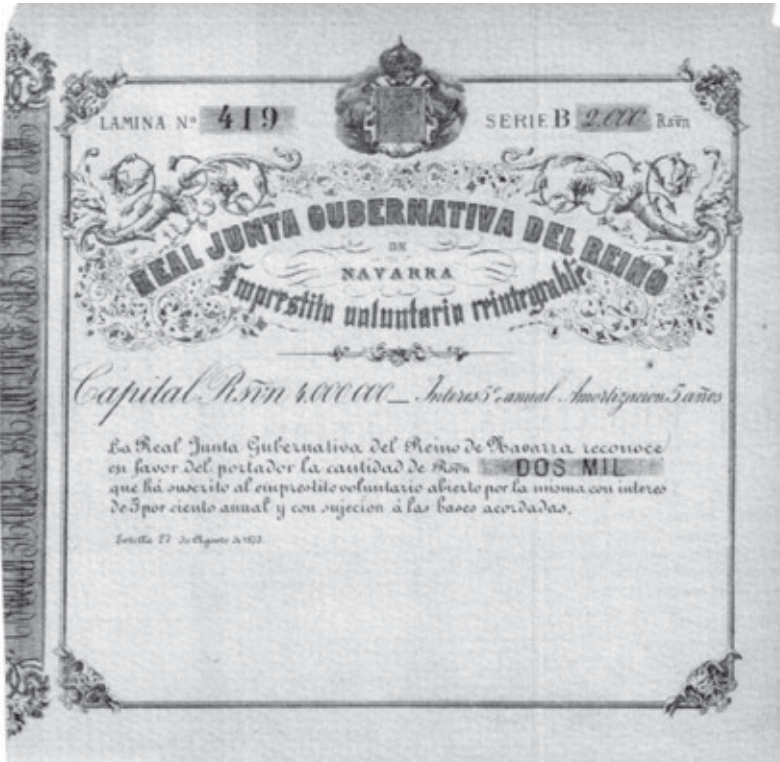 LAMINA Nº 419
SERIE B 2.000 Rsvn
REAL JUNTA GUBERNATIVA DEL REINO
DE
NAVARRA
Emprestito voluntario reintegrable
Capital Rsvn 4.000.000 _ Interes 5º anual Amortizacion 5 años
La Real Junta Gubernativa del Reino de Navarra reconoce
en favor del portador la cantidad de Rsvn DOS MIL
que há suscrito al emprestito voluntario abierto por la misma con interes
de 5 por ciento anual y con sujecion á las bases acordadas.
Estella 27 de Agosto de 1873.